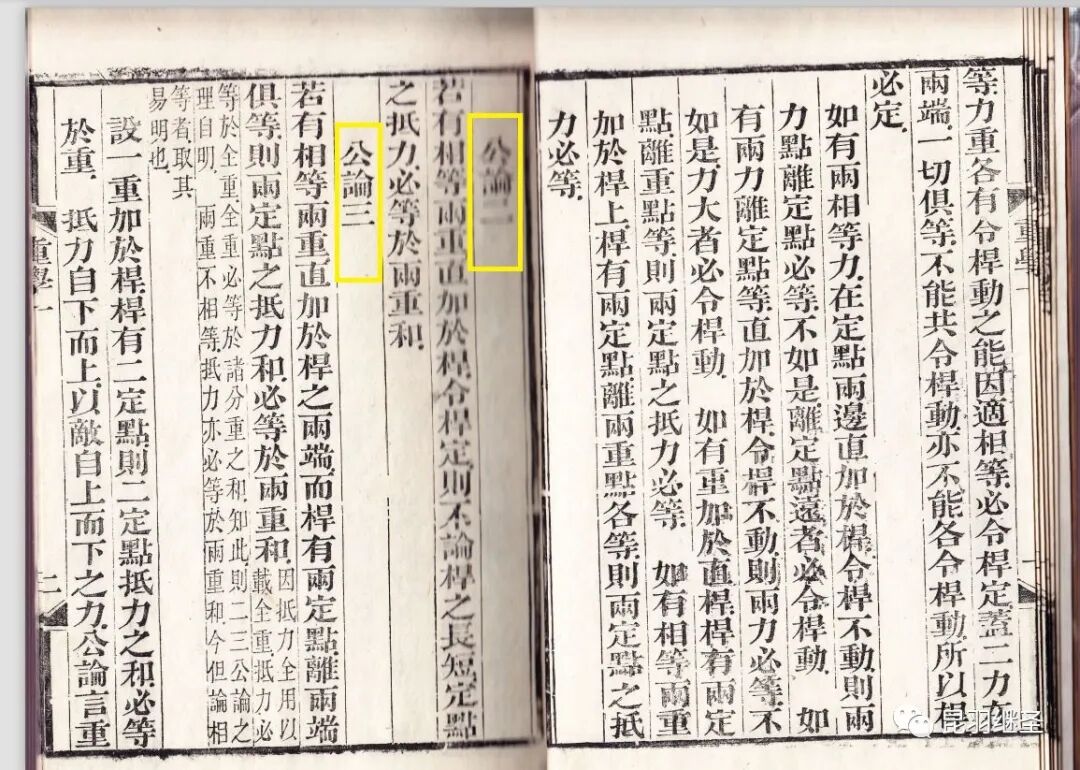 等力重各有令桿動之能因適相等必令桿定蓋二力在
兩端一切俱等不能共令桿動亦不能各令桿動所以桿
必定
如有兩相等力在定點兩邊直加於桿令桿不動則兩
力點離定點必等不如是離定點遠者必令桿動 如
有兩力離定點等直加於桿令桿不動則兩力必等不
如是力大者必令桿動 如有重加於直桿桿有兩定
點離重點等則兩定點之抵力必等 如有相等兩重
加於桿上桿有兩定點離兩重點各等則兩定點之抵
力必等
公論二
若有相等兩重直加於桿令桿定則不論桿之長短定點
之抵力必等於兩重和
公論三
若有相等兩重直加於桿之兩端而桿有兩定點離兩端
俱等則兩定點之抵力和必等於兩重和因抵力全用以
載全重抵力必
等於全重全重必等於諸分重之和知此則二三公論之
理自明 兩重不相等抵力亦必等於兩重和今但論相
等者取其
易明也
設一重加於桿桿有二定點則二定點抵力之和必等
於重 抵力自下而上以敵自上而下之力公論言重
重學一
二
昆羽继圣